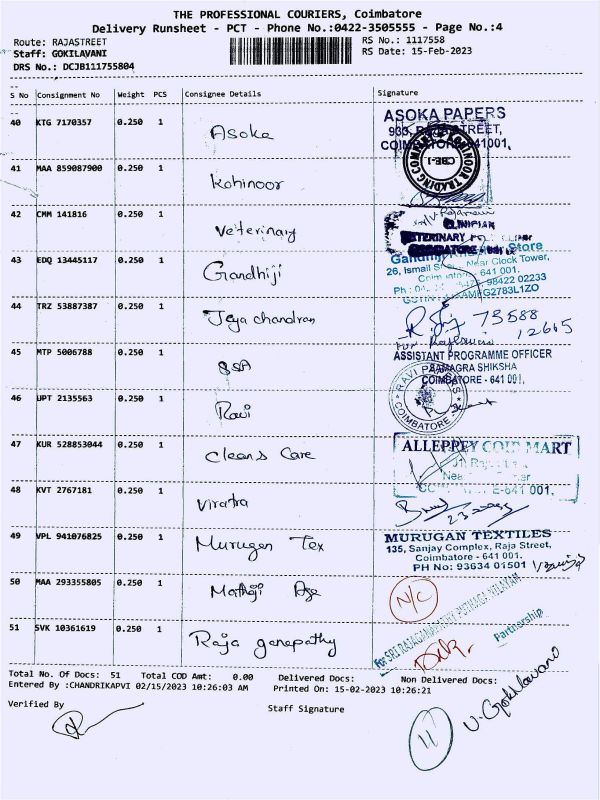 THE PROFESSIONAL COURIERS, Coimbatore
Delivery Runsheet - PCT - Phone No.:0422-3505555 - Page No.:4
Route: RAJASTREET
RS No.: 1117558
Staff: GOKILAVANI
RS Date: 15-Feb-2023
DRS No.: DCJB111755804
S No Consignment No Weight PCS Consignee Details Signature
40 KTG 7170357 0.250 1 Asoka
ASOKA PAPERS
933, RAJA STREET,
COIMBATORE-641001.
KOHINOOR TRADING COMPANY
CBE-1
41 MAA 859087900 0.250 1 Kohinoor
42 CMM 141816 0.250 1 Veterinary
CLINICIAN
VETERINARY
43 EDQ 13445117 0.250 1 Gandhiji
Store
26, Ismail Near Clock Tower,
641 001.
98422 02233
44 TRZ 53887387 0.250 1 Jeyachandran
73588
12665
45 MTP 5006788 0.250 1 SSA
ASSISTANT PROGRAMME OFFICER
SAMAGRA SHIKSHA
COIMBATORE - 641 001.
46 UPT 2135563 0.250 1 Ravi
RAVI PAPERS
COIMBATORE
47 KUR 528853044 0.250 1 Cleans Care
ALLEPPEY COIR MART
641 001.
48 KVT 2767181 0.250 1
49 VPL 941076825 0.250 1 Murugan Tex
MURUGAN TEXTILES
135, Sanjay Complex, Raja Street,
Coimbatore - 641 001.
PH No: 93634 01501
50 MAA 293355805 0.250 1
N/C
51 SVK 10361619 0.250 1 Raja ganapathy
For SRI RAJAGANAPATHY PUTHAGA NILAYAM
Partnership
Total No. Of Docs: 51 Total COD Amt: 0.00 Delivered Docs: Non Delivered Docs:
Entered By :CHANDRIKAPVI 02/15/2023 10:26:03 AM Printed On: 15-02-2023 10:26:21
Verified By
Staff Signature
11
V. Gokilavani